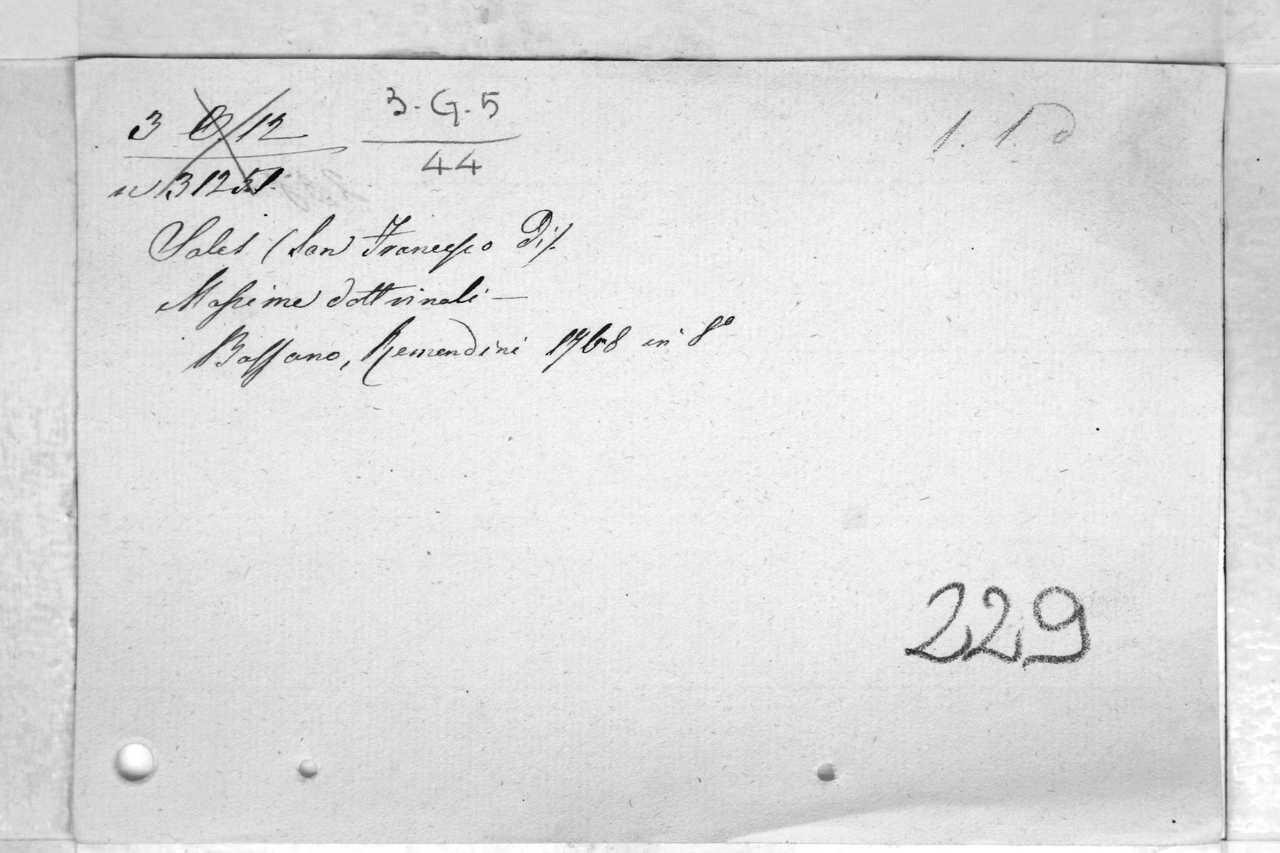 3 G/12
3-G-5
44
Sales (San Francesco Di)
Massime dottrinali —
Bassano, Remondini 1768 in 8º
229